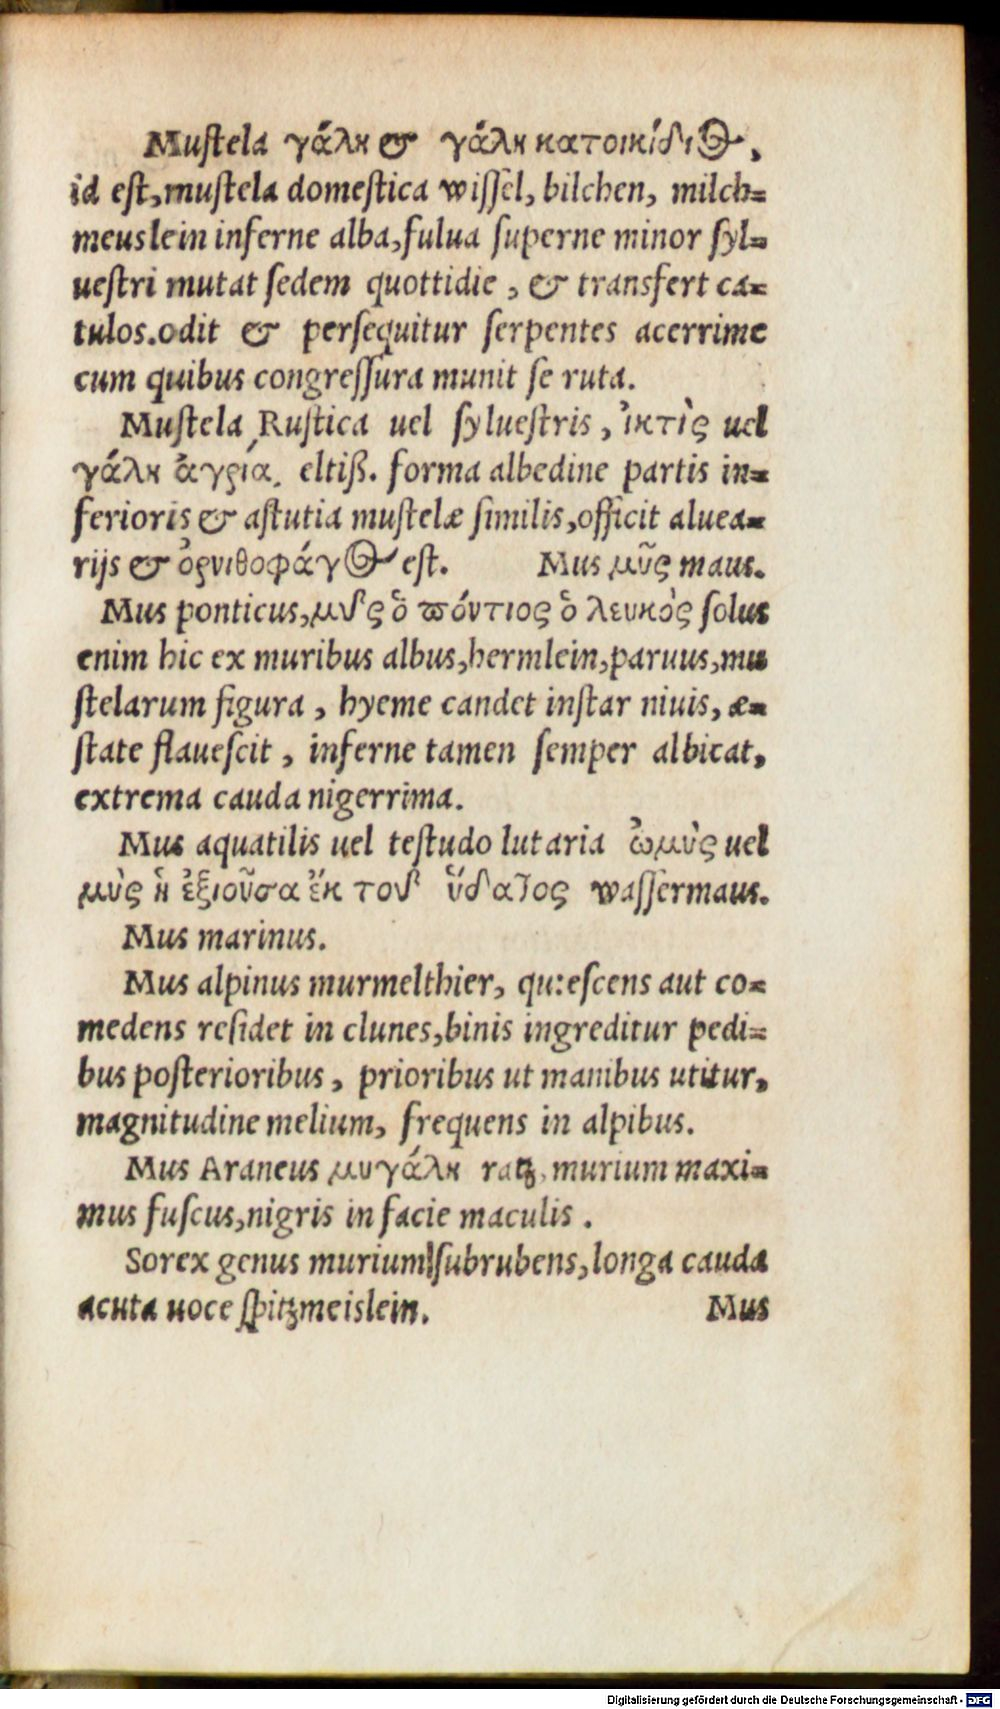 Muſtela γάλη & γάλη κατοικίδιος,
id eſt, muſtela domeſtica wiſſel, bilchen, milch-
meuslein inferne alba, fulua ſuperne minor ſyl-
ueſtri mutat ſedem quottidie, & transfert ca-
tulos. odit & perſequitur ſerpentes acerrime
cum quibus congreſſura munit ſe ruta.
Muſtela Ruſtica uel ſylueſtris, ἰκτὶς uel
γάλη ἀγρία, eltiß. forma albedine partis in-
ferioris & aſtutia muſtelæ ſimilis, officit aluea-
rijs & ὀρνιθοφάγος eſt. Mus μῦς maus.
Mus ponticus, μῦς ὁ πόντιος ὁ λευκὸς ſolus
enim hic ex muribus albus, hermlein, paruus, mu
ſtelarum figura, hyeme candet inſtar niuis, æ-
ſtate flaueſcit, inferne tamen ſemper albicat,
extrema cauda nigerrima.
Mus aquatilis uel teſtudo lutaria ὠμὺς uel
μὺς ἡ ἐξιοῦσα ἐκ τοῦ ὕδατος waſſermaus.
Mus marinus.
Mus alpinus murmelthier, quieſcens aut co-
medens reſidet in clunes, binis ingreditur pedi-
bus poſterioribus, prioribus ut manibus utitur,
magnitudine melium, frequens in alpibus.
Mus Araneus μυγάλη ratz, murium maxi-
mus fuſcus, nigris in facie maculis.
Sorex genus murium ſubrubens, longa cauda
acuta uoce ſpitzmeislein. Mus
Digitalisierung gefördert durch die Deutsche Forschungsgemeinschaft - DFG